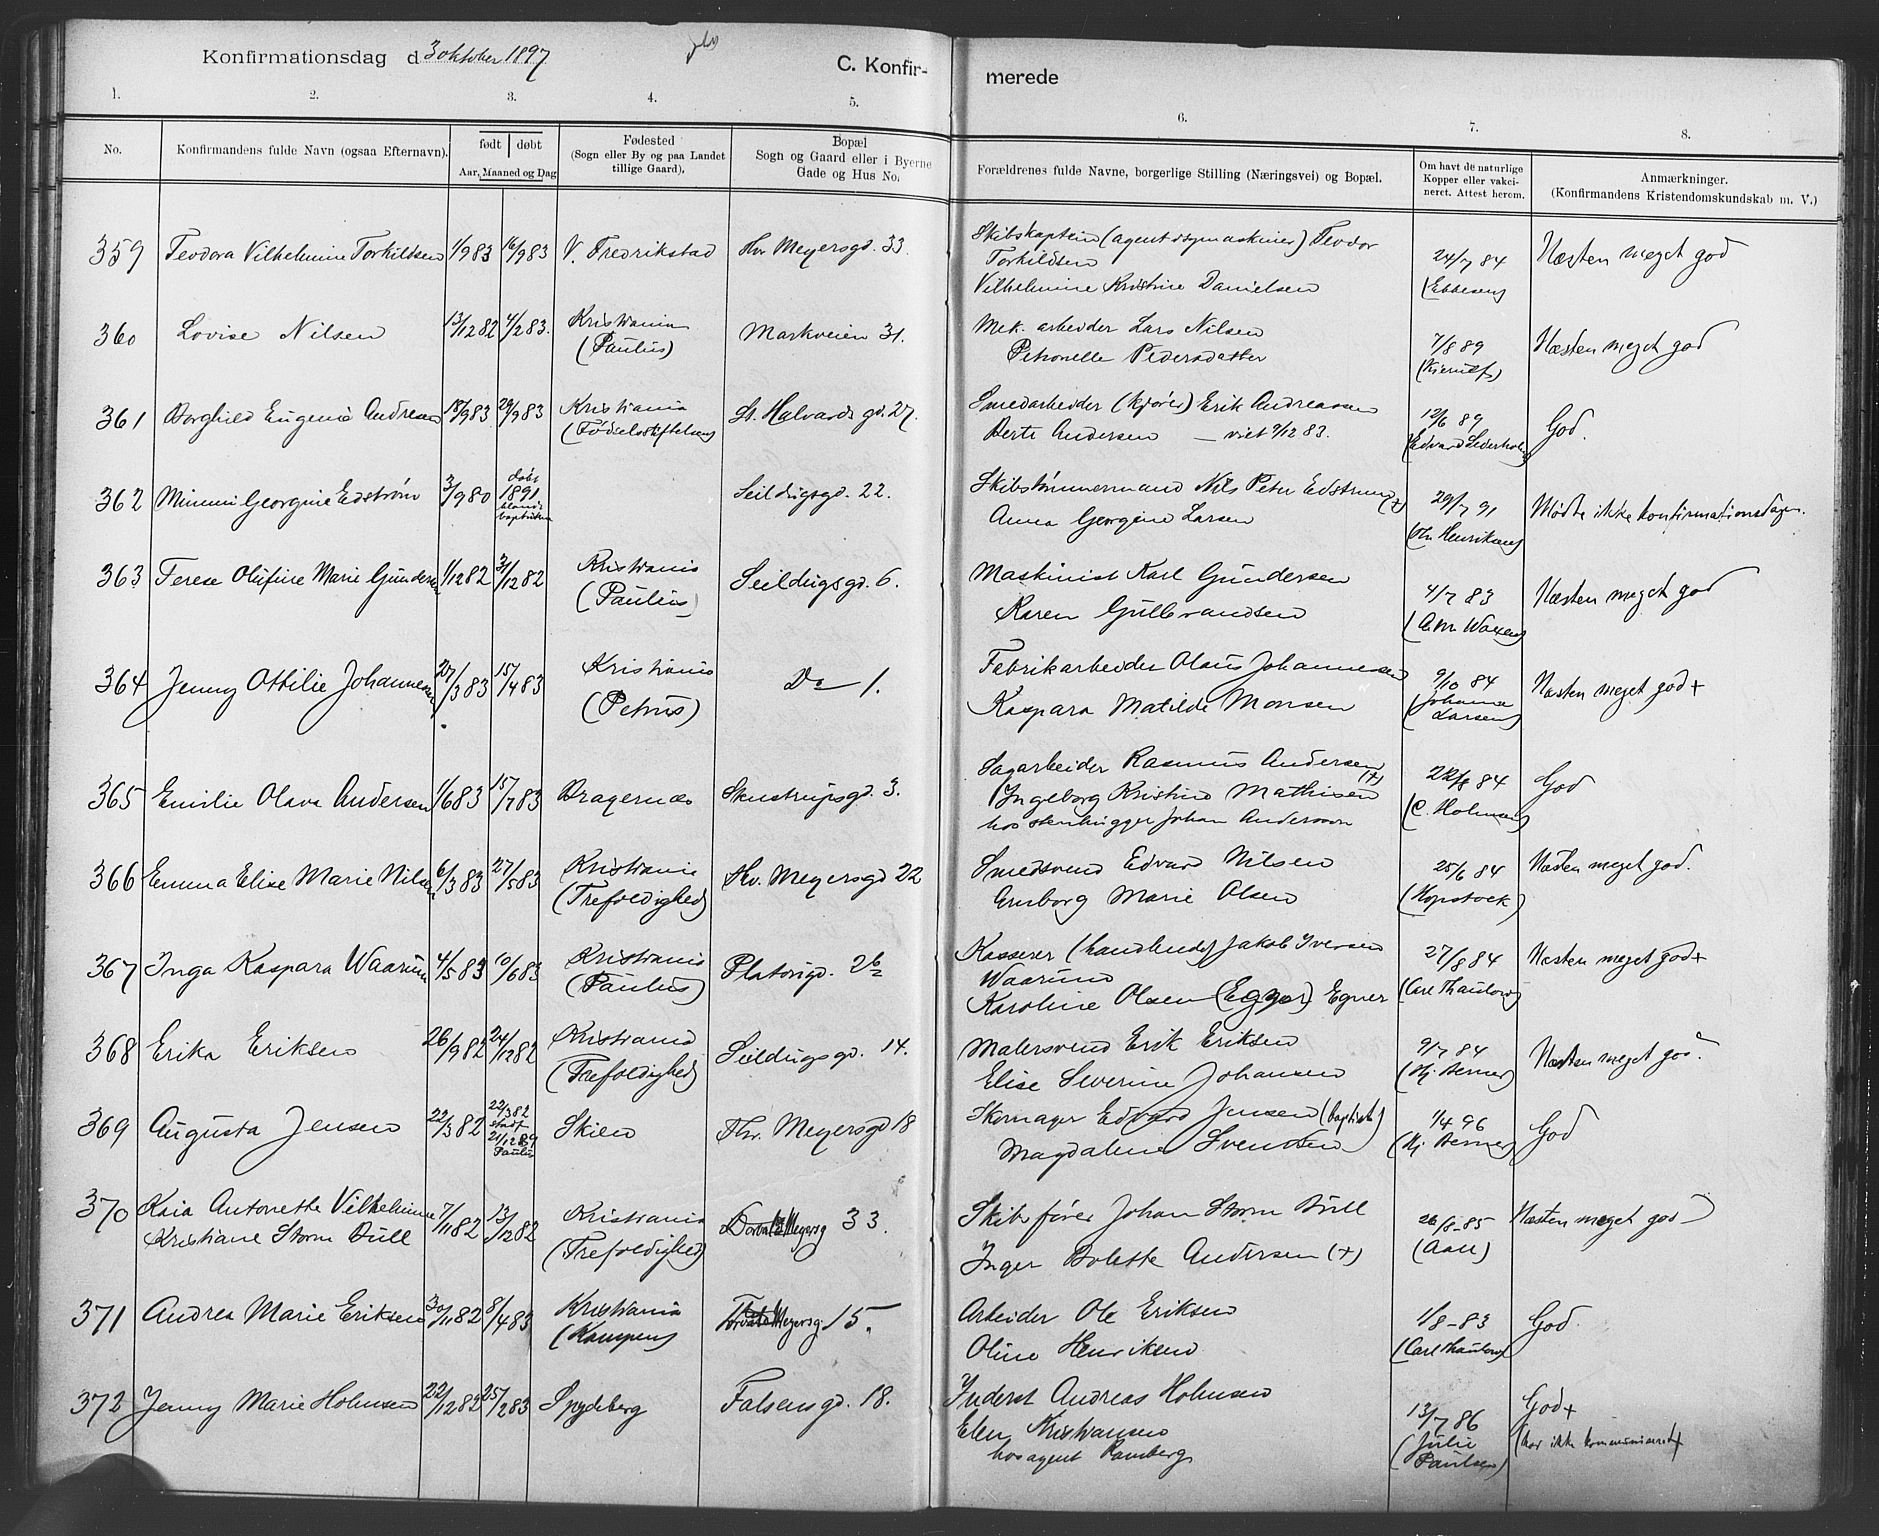 Konfirmationsdag d. 3 oktober 1897
C. Konfir-
merede
1. 2. 3. 4. 5. 6. 7. 8.
No.
Konfirmandens fulde Navn (ogsaa Efternavn).
født døbt
Aar, Maaned og Dag
Fødested
(Sogn eller By og paa Landet
tillige Gaard).
Bopæl
Sogn og Gaard eller i Byerne
Gade og Hus No.
Forældrenes fulde Navne, borgerlige Stilling (Næringsvei) og Bopæl.
Om havt de naturlige
Kopper eller vakci-
neret. Attest herom.
Anmærkninger.
(Konfirmandens Kristendomskundskab m. V.)
359 Teodora Vilhelmine Torkildsen 1/9 83 16/9 83 V. Fredrikstad Thv. Meyersgd. 33.
Skibskaptein (agent i symaskiner) Teodor
Torkildsen
Vilhelmine Kristine Danielsen
24/7 84
(Ebbesen)
Næsten meget god
360 Lovise Nilsen 13/12 82 4/2 83. Kristiania
(Paulus)
Markveien 31.
Mek. arbeider Lars Nilsen
Petronelle Pedersdatter
7/8 89
(Kierulf)
Næsten meget god
361 Borghild Eugenia Andresen 18/9 83 29/9 83 Kristiania
(Fødselsstiftelsen)
St. Halvards gd. 27.
Smedarbeider (kjører) Erik Andreassen
Berte Andersen — viet 9/12 83.
12/6 89
(Edvard Cederholm)
God.
362 Minnni Georgine Edstrøm 3/9 80 døbt
1891
blandt
baptister
Seildugsgd. 22.
Skibstømmermand Nils Peter Edstrøm (+)
Anna Georgine Larsen
29/7 91
(Chr Henriksen)
Mødte ikke konfirmationsdagen.
363 Terese Olufine Marie Gundersen 1/12 82 31/12 82 Kristiania
(Paulus)
Seildugsgd. 6.
Maskinist Karl Gundersen
Karen Gulbrandsen
4/7 83
Næsten meget god
364 Jenny Ottilie Johannesen 27/3 83 15/4 83 Kristiania
(Petrus)
Do 1.
Fabrikarbeider Olaus Johannesen
Kaspara Matilde Monsen
9/10 84
(Johanna
Larsen)
Næsten meget god +
365 Emilie Olava Andersen 1/6 83 15/7 83 Bragernæs Skustrupsgd. 3.
Sagarbeider Rasmus Andersen
(+)
Ingeborg Kristine Mathisen
hos stenhugger Johan Andersson
22/8 84
(C. Holmsen)
God
366 Emma Elise Marie Nilsen 6/3 83 27/5 83 Kristiania
(Trefoldighed)
Thv. Meyersgd 22
Smedsvend Edvard Nilsen
Gunborg Marie Olsen
25/6 84
(Kopstock)
Næsten meget god.
367 Inga Kaspara Waarum 4/5 83 10/6 83 Kristiania
(Paulus)
Platousgd. 2b
Kasserer (handlende) Jakob Iversen
Waarund
Karoline Olsen (Egner) Egner
27/8 84
(Carl Thaulow)
Næsten meget god +
368 Erika Eriksen 26/9 82 24/12 82 Kristiania
(Trefoldighed)
Seildugsgd. 14.
Malersvend Erik Eriksen
Elise Severine Johansen
9/7 84
(Hj. Berner)
Næsten meget god.
369 Augusta Jensen 22/3 82 22/3 82
stadf
21/12 89
Paulus
Skien Thv. Meyersgd 18
Skomager Edvard Jensen (baptist)
Magdalene Svendsen
1/4 96
(Hj. Berner)
God
370 Kaia Antonette Vilhelmine
Kristiane Storm Bull
7/11 82 13/12 82 Kristiania
(Trefoldighed)
Meyersg 33.
Skibsfører Johan Storm Bull
Inger Bolette Andersen (+)
26/8-85
(Aall)
Næsten meget god
371 Andrea Marie Eriksen 30/11 82 8/4 83 Kristiania
(Kampen)
Meyersg 15.
Arbeider Ole Eriksen
Oline Henriksen
1/8-83
(Carl Thaulow)
God.
372 Jenny Marie Holmsen 22/12 82 25/2 83 Spydeberg Falsensgd. 18.
Inderst Andreas Holmsen
Elen Kristiansen
hos agent Ramberg
13/7 86
(Julie
Paulsen)
God +
(har ikke kommuniceret)